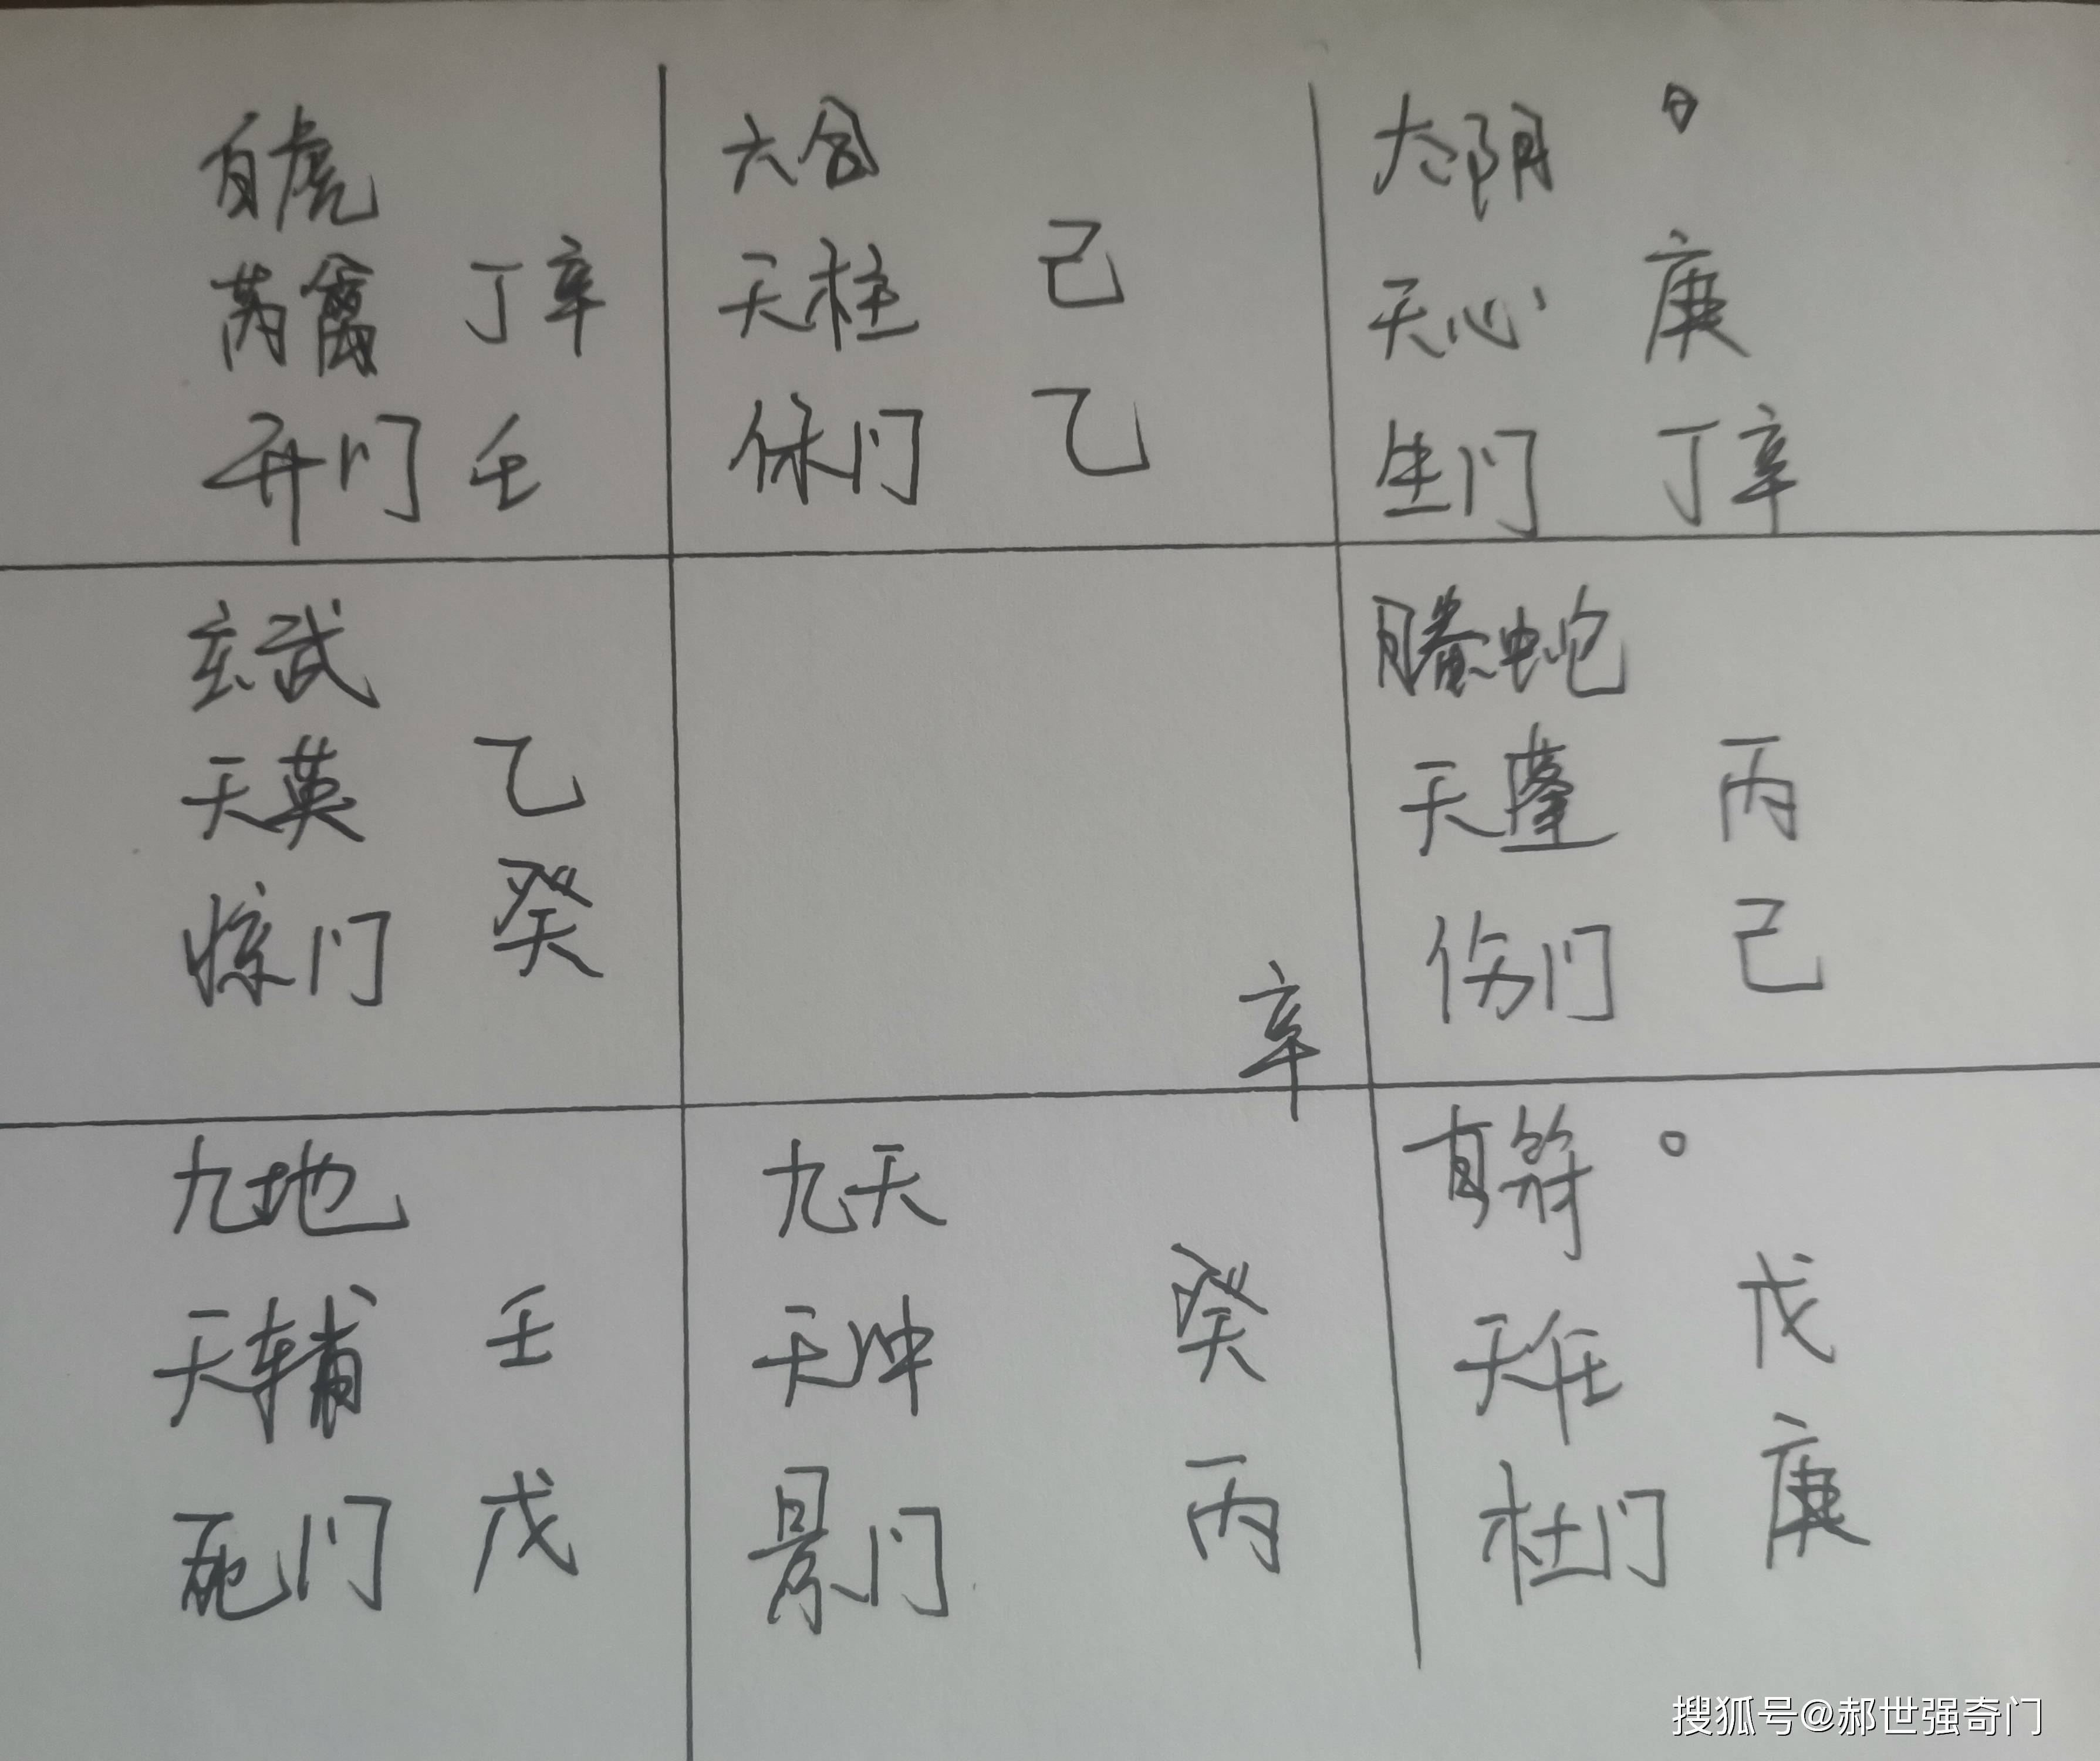 白虎
芮禽 丁辛
开门 壬
六合
天柱 己
休门 乙
太阴
天心 庚
生门 丁辛
玄武
天英 乙
惊门 癸
辛
螣蛇
天蓬 丙
伤门 己
九地
天辅 壬
死门 戊
九天
天冲 癸
景门 丙
直符
天任 戊
杜门 庚
搜狐号@郝世强奇门